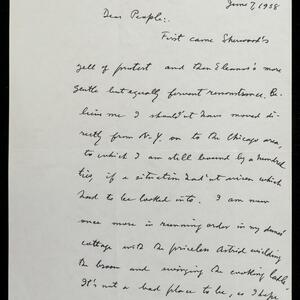 June 7, 1958
Dear People:.
First came Sherwood's
yell of protest and then Eleanor's more
gentle but equally fervent remonstrance. Be-
lieve me I should'nt have moved di-
rectly from N.Y. on to the Chicago area,
to which I am still bound by a hundred
ties, if a situation had'nt arisen which
had to be looked into. I am now
once more in running order in my
cottage with the priceless Astrid wielding
the broom and swinging the cooking ladle.
It's not a bad place to be, as I hope